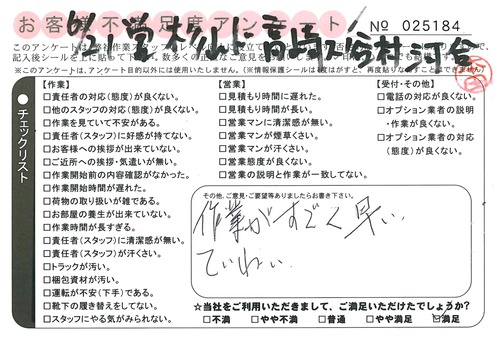 お客様不満足度アンケート
№ 025184
チェックリスト
【作業】
□責任者の対応（態度）が良くない。
□他のスタッフの対応（態度）が良くない。
□作業を見ていて不安がある。
□責任者（スタッフ）に好感が持てない。
□お客様への挨拶が出来ていない。
□ご近所への挨拶・気遣いが無い。
□作業開始前の内容確認がなかった。
□作業開始時間が遅れた。
□荷物の取り扱いが雑である。
□お部屋の養生が出来ていない。
□作業時間が長すぎる。
□責任者（スタッフ）に清潔感が無い。
□責任者（スタッフ）が汗くさい。
□トラックが汚い。
□梱包資材が汚い。
□運転が不安（下手）である。
□靴下の履き替えをしてない。
□スタッフにやる気がみられない。
【営業】
□見積もり時間に遅れた。
□見積もり時間が長い。
□営業マンに清潔感が無い。
□営業マンが煙草くさい。
□営業マンが汗くさい。
□営業態度が良くない。
□営業の説明と作業が一致してない。
【受付・その他】
□電話の対応が良くない。
□オプション業者の説明
・作業が良くない。
□オプション業者の対応
（態度）が良くない。
その他、ご意見・ご要望等ありましたらお書き下さい。
作業がすごく早い
ていねい
☆当社をご利用いただきまして、ご満足いただけたでしょうか？
□不満 □やや不満 □普通 □やや満足 ☑満足